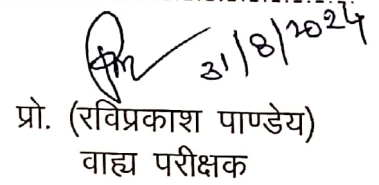 31/8/2024
प्रो. (रविप्रकाश पाण्डेय)
वाह्य परीक्षक